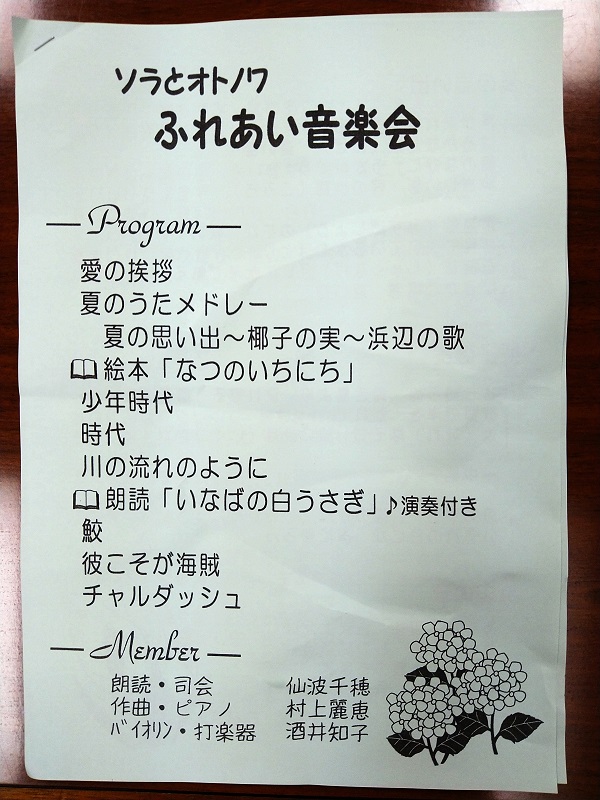 ソラとオトノワ
ふれあい音楽会
Program
愛の挨拶
夏のうたメドレー
夏の思い出～椰子の実～浜辺の歌
絵本「なつのいちにち」
少年時代
時代
川の流れのように
朗読「いなばの白うさぎ」♪演奏付き
鮫
彼こそが海賊
チャルダッシュ
Member
朗読・司会 仙波千穂
作曲・ピアノ 村上麗恵
ﾊﾞｲｵﾘﾝ・打楽器 酒井知子